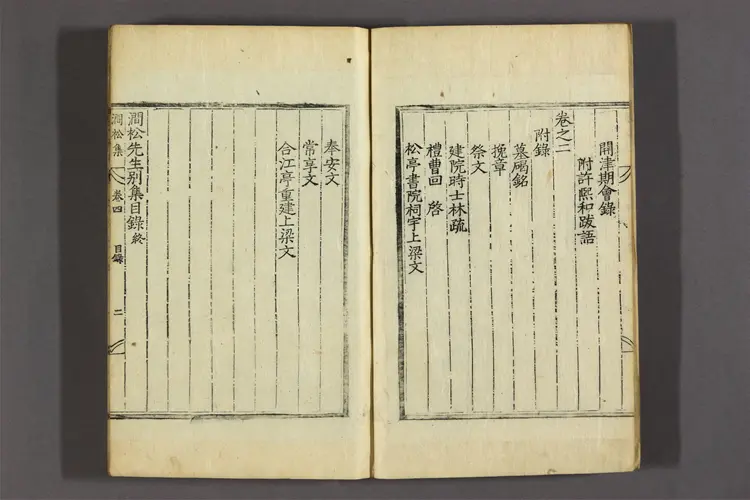 開津期會錄
附許熙和跋語
卷之二
附錄
墓碣銘
挽章
祭文
建院時士林疏
禮曹回啓
松亭書院祠宇上梁文
奉安文
常享文
合江亭重建上梁文
澗松先生別集目錄終
澗松集 卷四 目錄 二